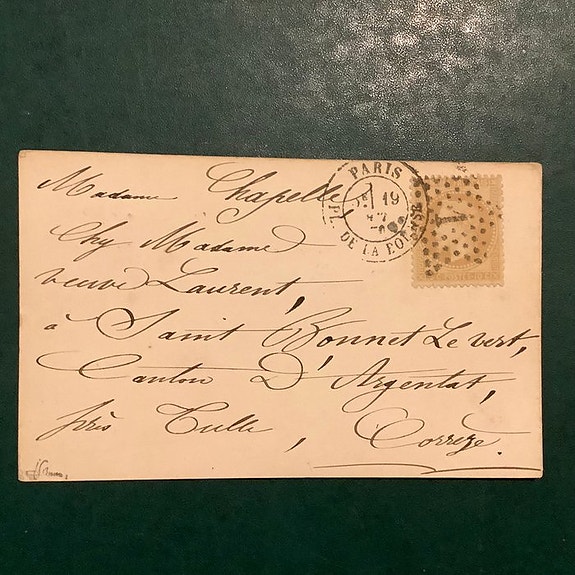 Madame Chapelle
Chy Madame
veuve Laurent,
à Saint Bonnet Le vert,
Canton D'Argentat,
près Tulle, Corrèze.
PARIS
PL. DE LA BOURSE
19
1